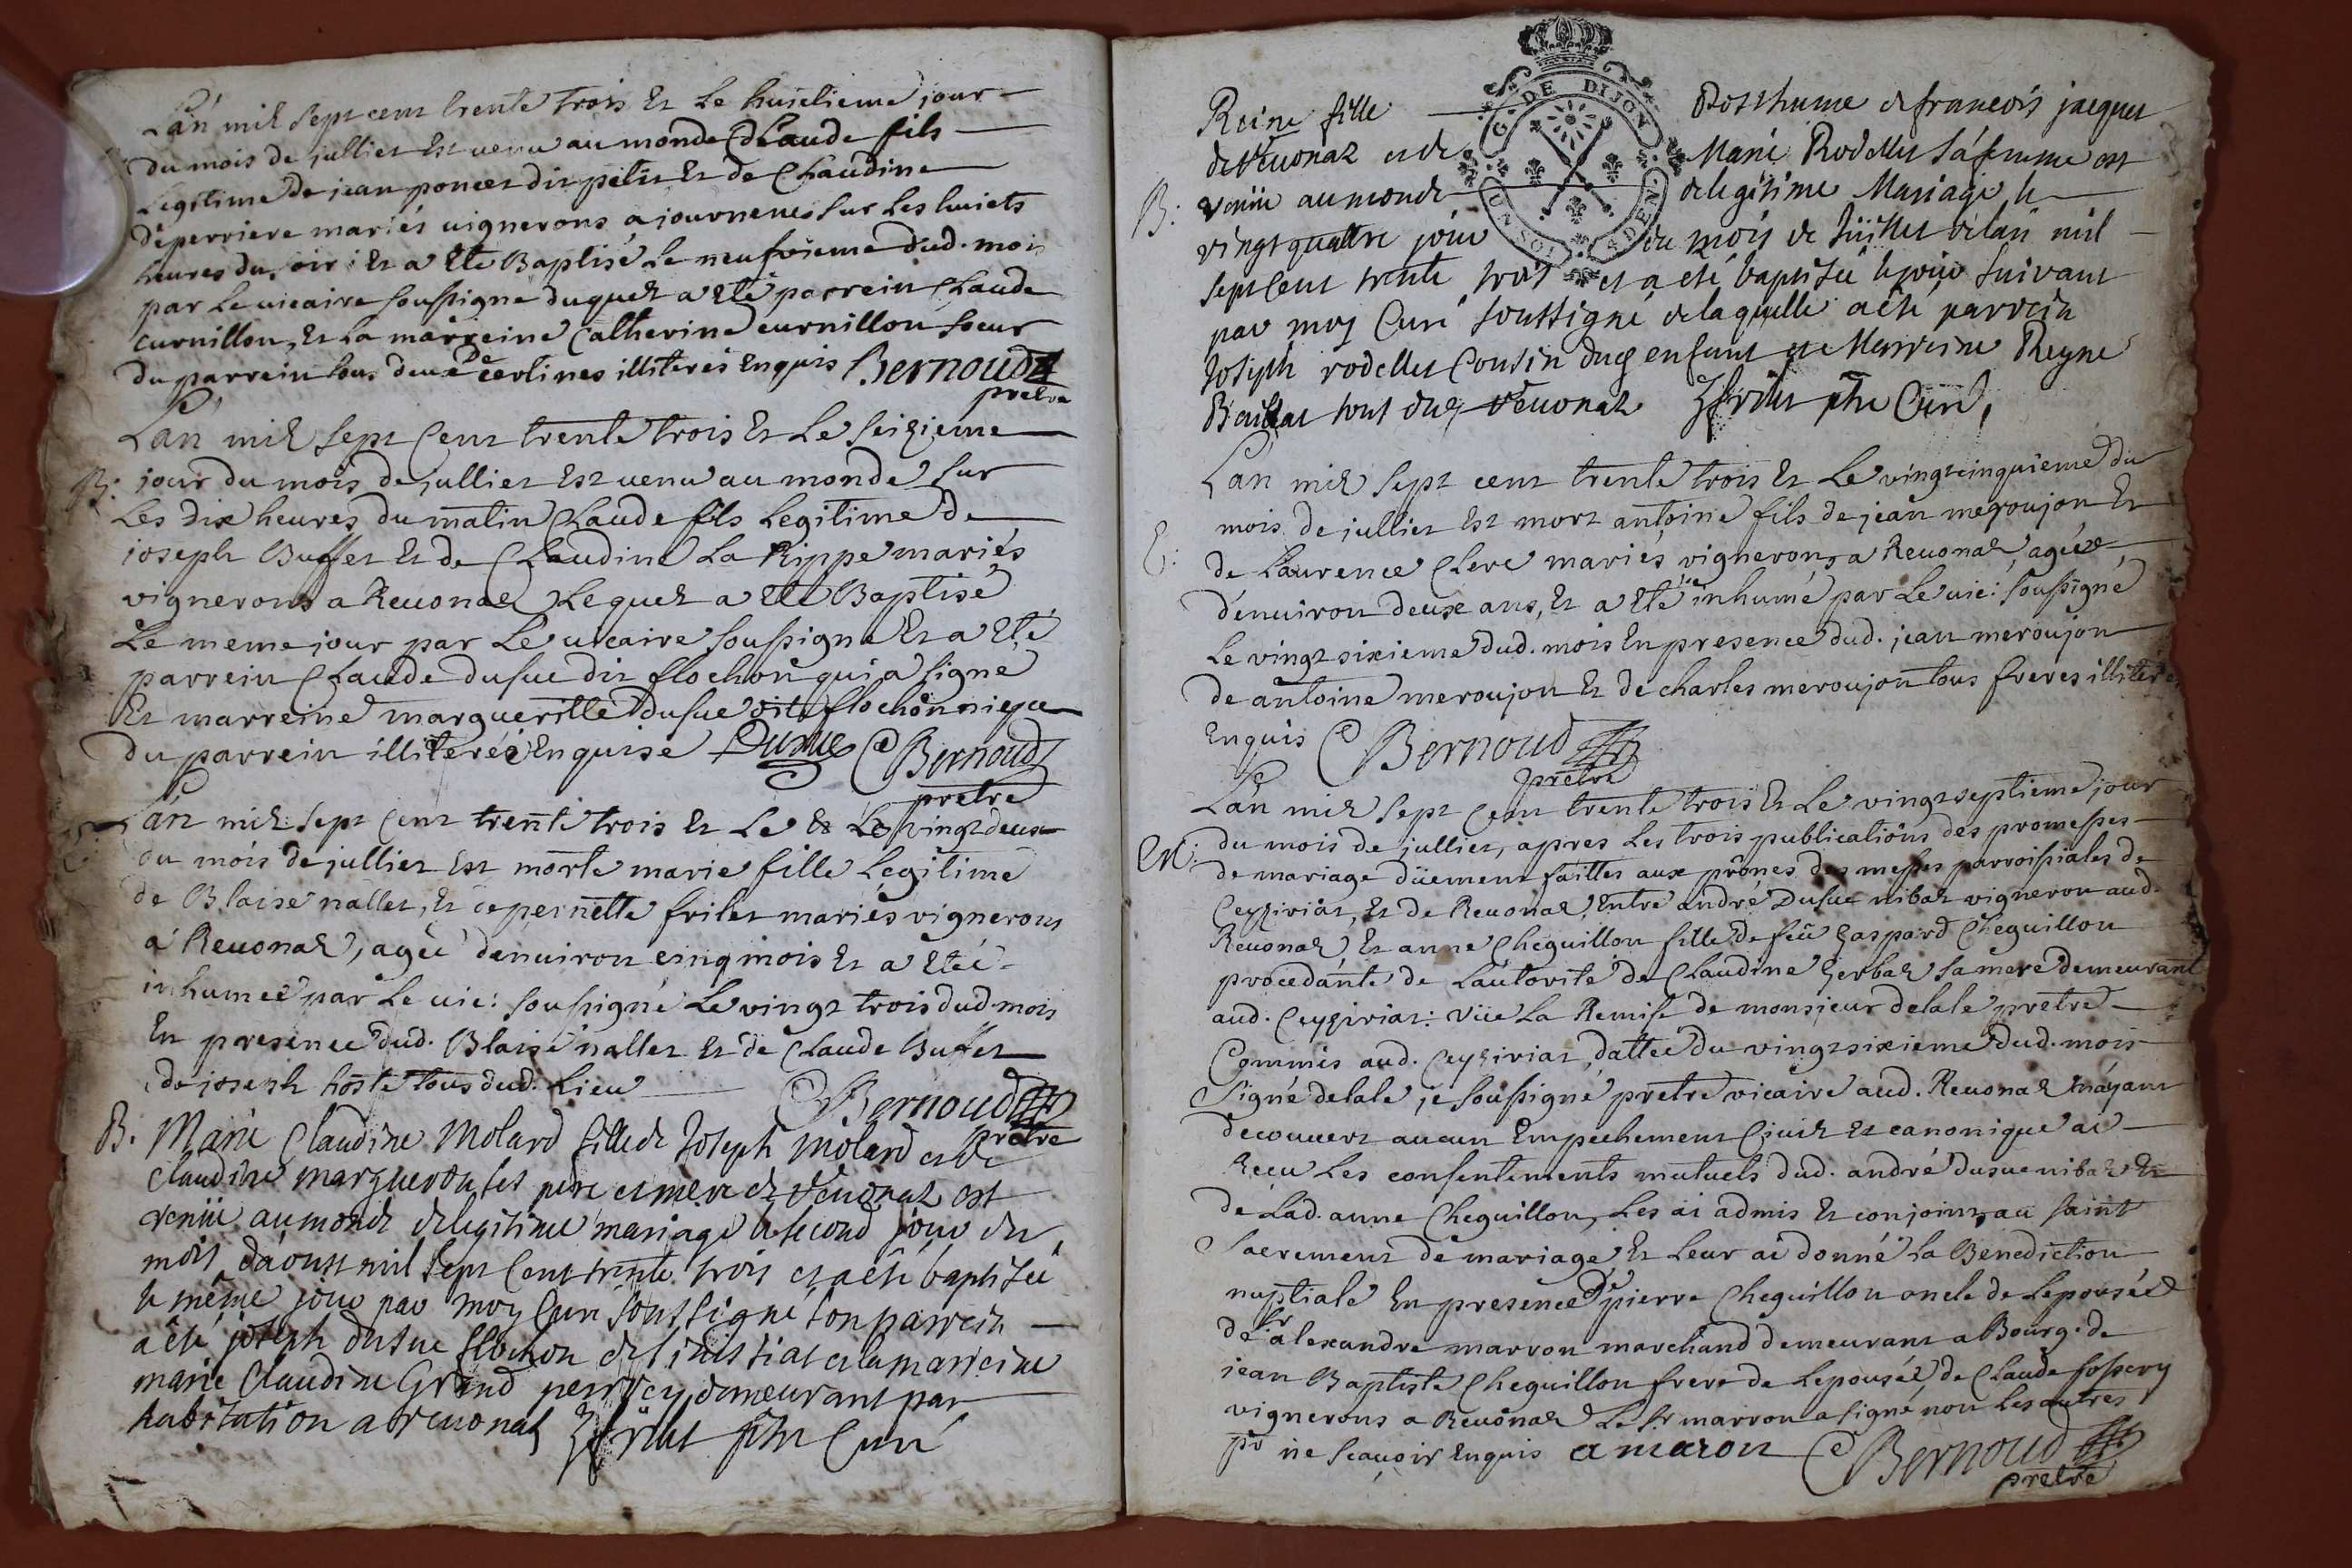 L'an mil sept cent trente trois et le huictieme jour
du mois de julliet est venu au monde Claude fils
legitime de jean poncet dit petit et de Claudine
deperriere mariés vignerons a journenes sur les huicts
heures du soir : et a ete Baptisé le neufvieme dud. mois
par le vicaire soussigné duquel a eté parrein Claude
curnillon, et la marreine Catherine curnillon soeur
du parrein tous deux de certines illiterés enquis Bernoud
pretre
L'an mil sept cent trente trois et le seizieme
B: jour du mois de jullier est venu au monde sur
les dix heures du matin Claude fils legitime de
joseph Buffet et de Claudine La Rippe mariés
vignerons a Revonaz lequel a eté Baptisé
le meme jour par le vicaire soussigné et a eté
parrein Claude dusue dit flochon qui a signé
et marreine margueritte dusue dit flochon niepce
du parrein illiterée enquise Dusue Bernoud
pretre
L'an mil sept cent trente trois et le & le vingt deux
du mois de jullier est morte marie fille legitime
de Blaise nallet, et de pernette frilet mariés vignerons
a Revonaz, agée d'environ cinq mois et a eteé
inhumée par le vic: soussigné le vingt trois dud mois
en presence dud. Blaise nallet et de Claude Buffet
de joseph hoste tous dud. lieu Bernoud
pretre
B. Marie Claudine Molard fille de Joseph Molard et de
Claudine marguerou ses pere et mere de Revonaz est
venüe au monde de legitime mariage le second jour du
mois d'aoust mil sept cent trente trois et a eté baptisée
le même jour par moy Curé soussigné son parrein
a eté joseph dusue flochon de et la marreine
marie Claudine Grand perrcy demeurant par
habitation a revonaz frilet ptre Curé
Reine fille Posthume de francois jacquet
de Revonaz et de Marie Rodellet sa femme est
B: venüe au monde de legitime Mariage le
vingt quatre jour du mois de Juillet de l'an mil
sept cent trente trois et a eté baptisée le jour suivant
par moy Curé soussigné de laquelle a eté parrein
Joseph rodellet Cousin dud enfant et Marreine Reyne
tous dud Revonaz frilet ptre Curé
G. DE DIJON
L'an mil sept cent trente trois et le vingt cinquieme du
mois de jullier est mort antoine fils de jean meroujon et
de Laurence Clerc mariés vignerons a Revonaz, agée
d'environ deux ans, et a eté inhumé par le vic: soussigné
le vingt sixieme dud. mois en presence dud. jean meroujon
de antoine meroujon et de charles meroujon tous freres illiterés
enquis Bernoud
pretre
L'an mil sept cent trente trois et le vingt septieme jour
M: du mois de jullier, apres les trois publications des promesses
de mariage düement faittes aux prônes des messes parroissiales de
Ceyziriat, et de Revonaz, entre andré Dusue nibaz vigneron aud.
Revonaz, et anne Cheguillon fille de feü Gaspard Cheguillon
procedante de l'autorité de Claudine Gerbaz sa mere demeurant
aud. Ceyziriat : vüe la Remise de monsieur delale pretre
Commis aud. Ceyziriat dattée du vingt sixieme dud. mois
signé delale, je soussigné pretre vicaire aud. Revonaz n'ayant
decouvert aucun empechement Civil et canonique ai
Recu les consentements mutuels dud. andré dusue nibaz et
de lad. anne Cheguillon, les ai admis et conjoints au saint
sacrement de mariage, et leur ai donné la Benediction
nuptiale en presence de pierre Cheguillon oncle de lepousée
de sr alexandre marron marchand demeurant a Bourg. de
jean Baptiste Cheguillon frere de lepousée, de Claude fossery
vignerons a Revonaz le sr marron a signé non les autres
pr ne scavoir enquis a maron Bernoud
pretre